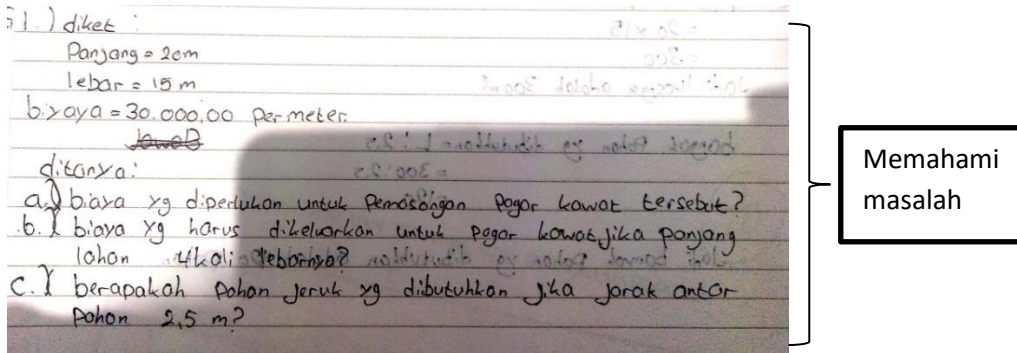 1.) diket :
Panjang = 20m
lebar = 15 m
biyaya = 30.000,00 Per meter.
Jawab
ditanya:
a.) biaya yg diperlukan untuk Pemasangan Pagar kawat tersebut?
b.) biaya yg harus dikeluarkan untuk pagar kawat jika panjang
lahan 4 kali lebarnya?
C.) berapakah Pohon Jeruk yg dibutuhkan Jika Jarak antar
Pohon 2,5 m?
Memahami
masalah